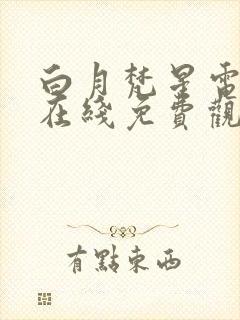 白月梵星電
在綫免費觀
有點東西